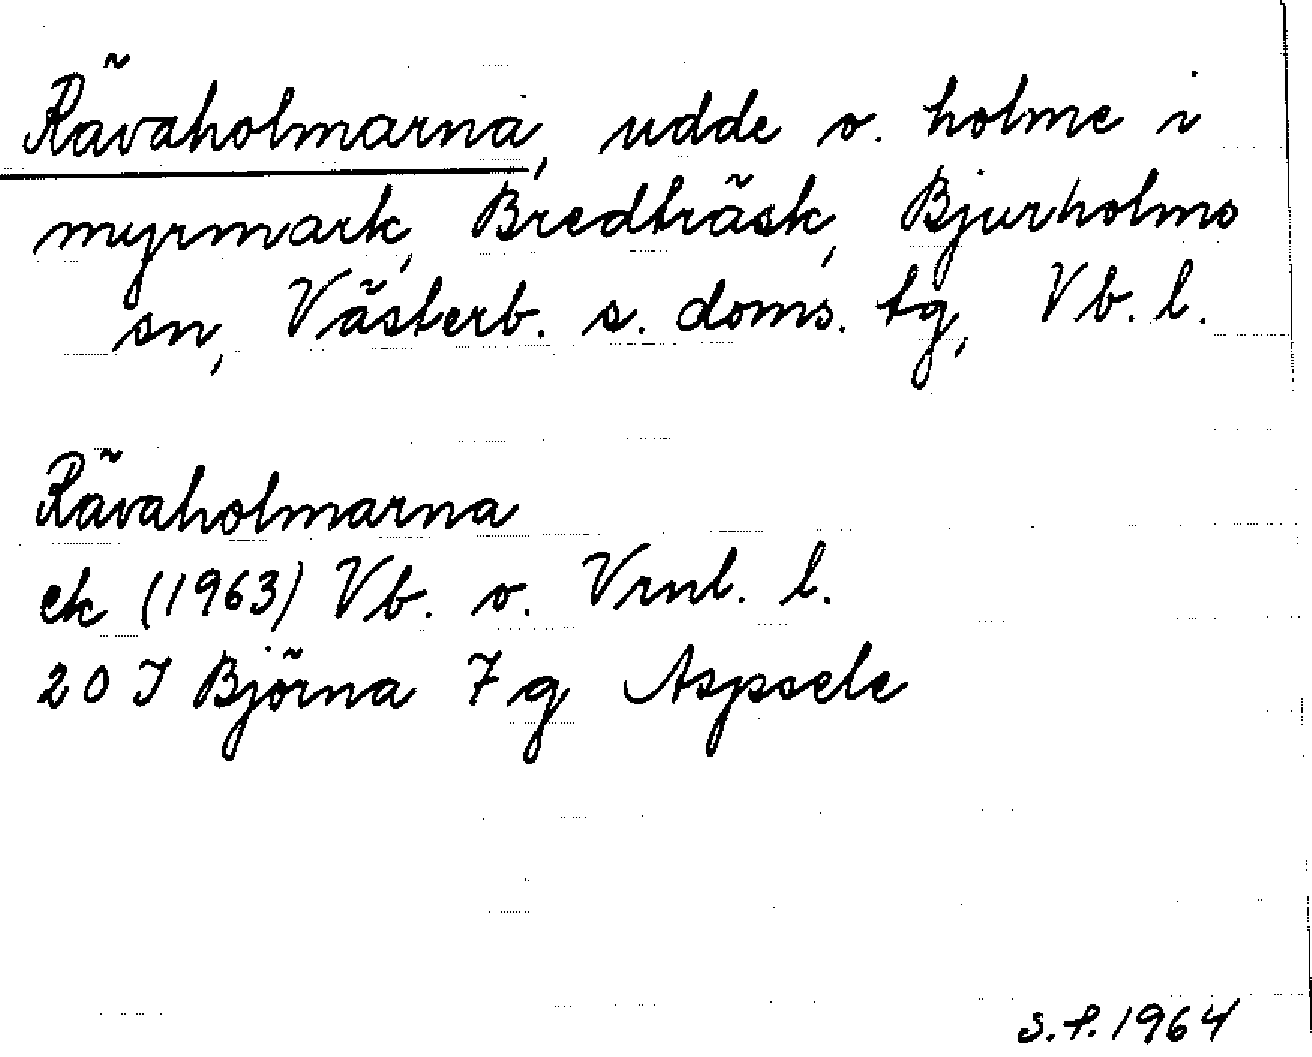 Rävaholmarna, udde o. holme i
myrmark, Bredträsk, Bjurholms
sn, Västerb. s. doms. tg, Vb. l.
Rävaholmarna
ek (1963) Vb. o. Vrnl. l.
20 J Björna 7 g Aspsele
S.P. 1964